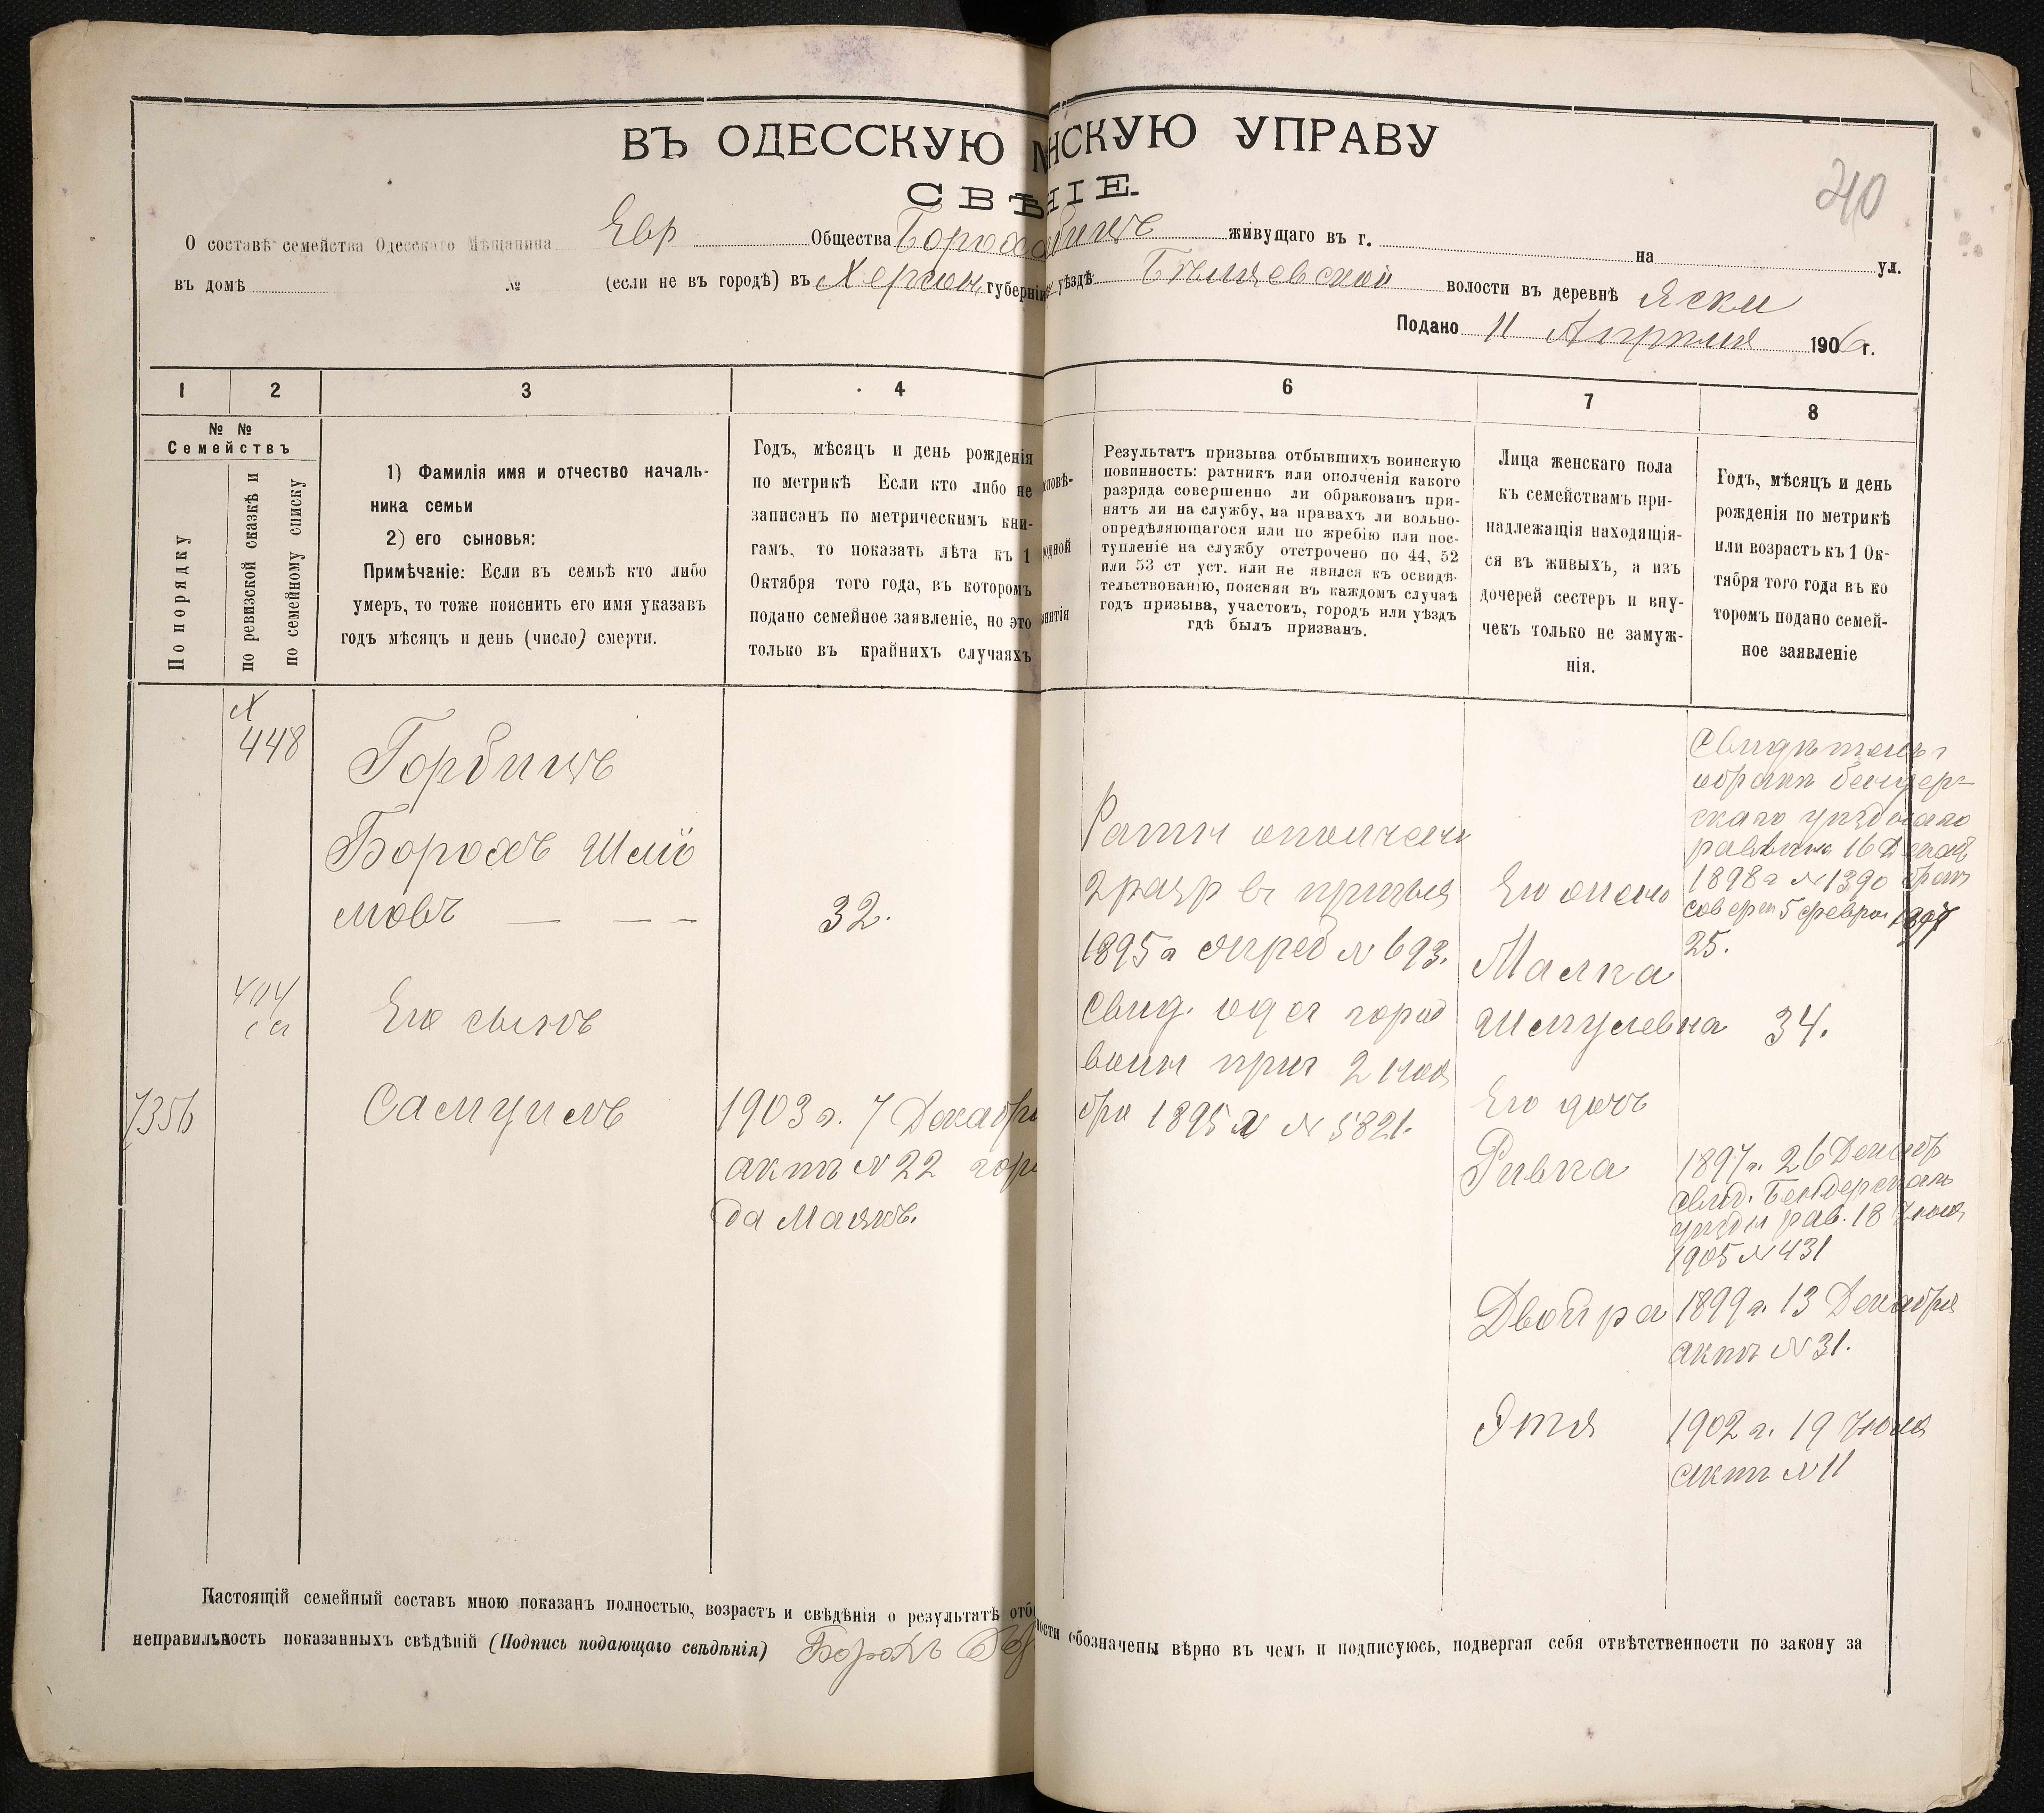 ВЪ ОДЕССКУЮ НСКУЮ УПРАВУ
СВѢНІЕ.
40
О составѣ семейства Одесскаго Мѣщанина Евр Общества живущаго въ г. на ул.
въ домѣ № (если не въ городѣ) въ Херсон губерніи уѣздѣ Бѣляевской волости въ деревнѣ Яски
Подано 11 Апрѣля 1906 г.
1 2 3 4 6 7 8
№ №
Семействъ
По порядку
по ревизской сказкѣ и
по семейному списку
1) Фамилія имя и отчество началь-
ника семьи
2) его сыновья:
Примѣчаніе: Если въ семьѣ кто либо
умеръ, то тоже пояснить его имя указавъ
годъ мѣсяцъ и день (число) смерти.
Годъ, мѣсяцъ и день рожденія
по метрикѣ Если кто либо не
записанъ по метрическимъ кни-
гамъ, то показать лѣта къ 1
Октября того года, въ которомъ
подано семейное заявленіе, но это
только въ крайнихъ случаяхъ
сповѣ-
одной
нятія
Результатъ призыва отбывшихъ воинскую
повинность: ратникъ или ополченія какого
разряда совершенно ли обракованъ при-
нятъ ли на службу, на правахъ ли вольно-
опредѣляющагося или по жребію или пос-
тупленіе на службу отстрочено по 44, 52
или 53 ст уст. или не явился къ освидѣ-
тельствованію, поясняя въ каждомъ случаѣ
годъ призыва, участокъ, городъ или уѣздъ
гдѣ былъ призванъ.
Лица женскаго пола
къ семействамъ при-
надлежащія находящія-
ся въ живыхъ, а изъ
дочерей сестеръ и вну-
чекъ только не замуж-
нія.
Годъ, мѣсяцъ и день
рожденія по метрикѣ
или возрастъ къ 1 Ок-
тября того года въ ко
торомъ подано семей-
ное заявленіе
448
Горбицъ
Борохъ Шлiо
мовъ — — —
32.
Его сынъ
Самуилъ
7356
1903 г. 7 Декабря
актъ № 22 горо
да Маякъ.
Ратн ополчен
2 разр въ призыв
1895 г № 693.
Свид. одес город
воин прис 2 нояб
бря 1895 г № 5821.
Его жена
Малка
Шмулевна
34.
25.
Его дочь
Ривка
Двойра
Этя
скаго уѣзднаго
раввина 16 Декаб
1898 г № 1390 брак
соверш 5 феврал 1897
1897 г. 26 Декабр
свид. Бендерскаго
уѣздн рав. 18 Июля
1905 № 431
1899 г. 13 Декабря
актъ № 31.
1902 г. 19 Июля
актъ № 11
Настоящій семейный составъ мною показанъ полностью, возрастъ и свѣдѣнія о результатѣ отб ности обозначены вѣрно въ чемъ и подписуюсь, подвергая себя отвѣтственности по закону за
неправильность показанныхъ свѣдѣній (Подпись подающаго свѣдѣнія) Борохъ